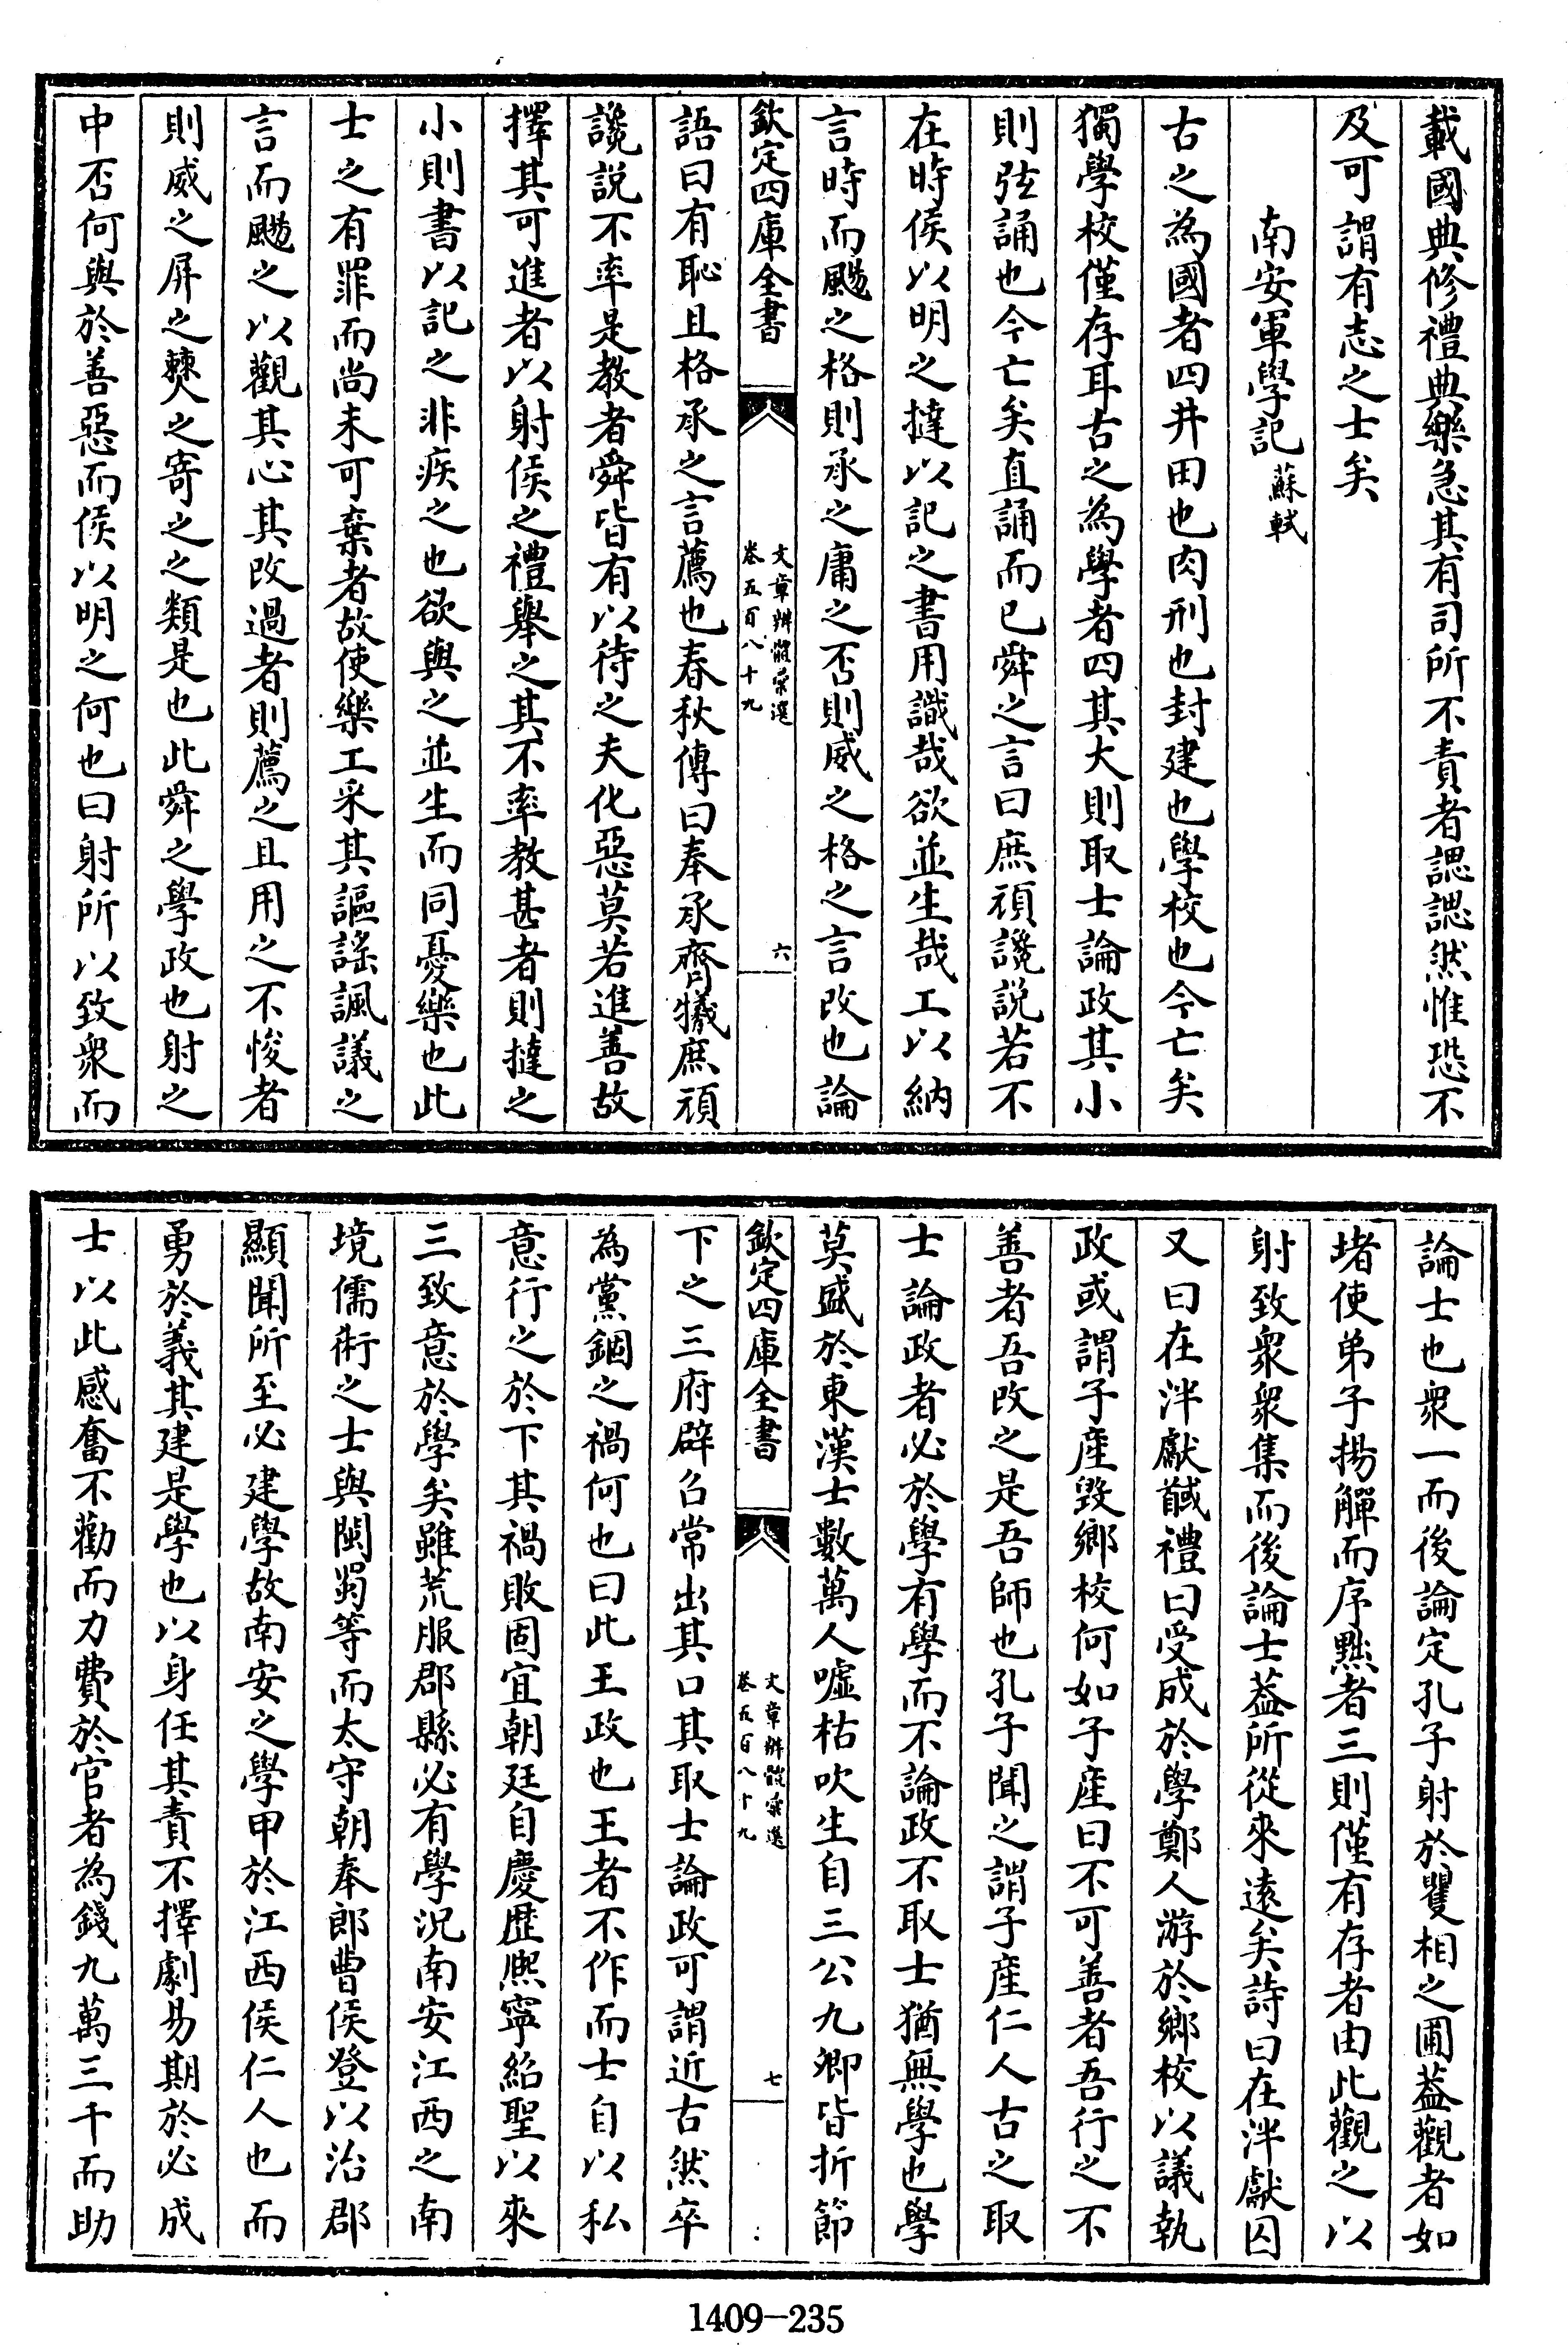 載國典修禮典樂急其有司所不責者諰諰然惟恐不
及可謂有志之士矣
南安軍學記 蘇軾
古之為國者四井田也肉刑也封建也學校也今亡矣
獨學校僅存耳古之為學者四其大則取士論政其小
則弦誦也今亡矣直誦而已舜之言曰庶頑讒說若不
在時侯以明之撻以記之書用識哉欲並生哉工以納
言時而颺之格則承之庸之否則威之格之言改也論
欽定四庫全書
文章辨體彙選
卷五百八十九
六
語曰有恥且格承之言薦也春秋傳曰奉承齊犧庶頑
讒說不率是教者舜皆有以待之夫化惡莫若進善故
擇其可進者以射侯之禮舉之其不率教甚者則撻之
小則書以記之非疾之也欲與之並生而同憂樂也此
士之有罪而尚未可棄者故使樂工采其謳謠諷議之
言而颺之以觀其心其改過者則薦之且用之不悛者
則威之屏之僰之寄之之類是也此舜之學政也射之
中否何與於善惡而侯以明之何也曰射所以致衆而
論士也衆一而後論定孔子射於矍相之圃葢觀者如
堵使弟子揚觶而序黜者三則僅有存者由此觀之以
射致衆衆集而後論士葢所從來遠矣詩曰在泮獻囚
又曰在泮獻馘禮曰受成於學鄭人游於鄉校以議執
政或謂子產毀鄉校何如子產曰不可善者吾行之不
善者吾改之是吾師也孔子聞之謂子產仁人古之取
士論政者必於學有學而不論政不取士猶無學也學
莫盛於東漢士數萬人噓枯吹生自三公九卿皆折節
欽定四庫全書
文章辨體彙選
卷五百八十九
七
下之三府辟召常出其口其取士論政可謂近古然卒
為黨錮之禍何也曰此王政也王者不作而士自以私
意行之於下其禍敗固宜朝廷自慶歴熈寧紹聖以來
三致意於學矣雖荒服郡縣必有學況南安江西之南
境儒術之士與閩蜀等而太守朝奉郎曹侯登以治郡
顯聞所至必建學故南安之學甲於江西侯仁人也而
勇於義其建是學也以身任其責不擇劇易期於必成
士以此感奮不勸而力費於官者為錢九萬三千而助
1409-235